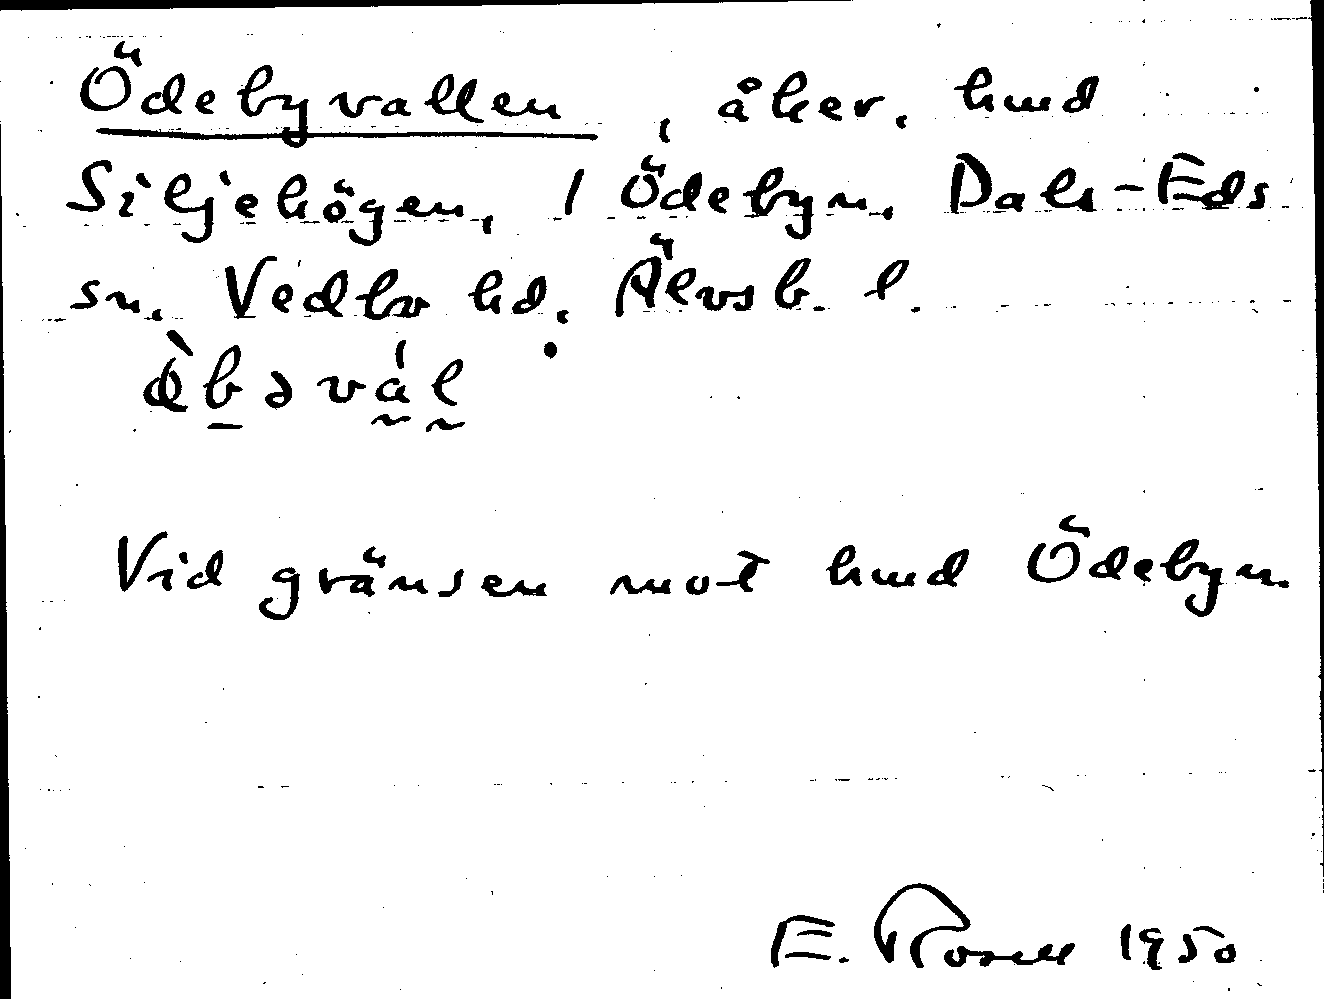 Ödebyvallen, åker, hmd
Siljehögen, 1 Ödebyn, Dals-Eds
sn, Vedbo hd, Älvsb. l.
Vid gränsen mot hmd Ödebyn
E. Rosell 1950